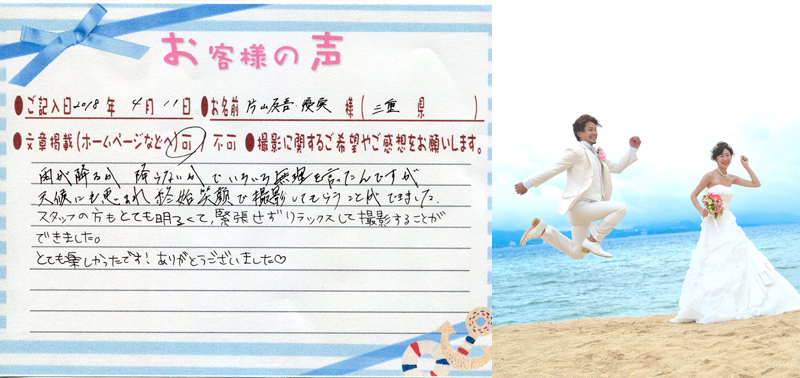 お客様の声
●ご記入日2018年 4月 11日 ●お名前 片山 様 (三重 県 )
●文章掲載(ホームページなどへ) 可 / 不可 ●撮影に関するご希望やご感想をお願いします。
雨が降るか 降らないか でいろいろ無理を言ったんですが
天候にも恵まれ 終始笑顔で撮影してもらうことができました。
スタッフの方もとても明るくて、緊張せずリラックスして撮影することが
できました。
とても楽しかったです!ありがとうございました♡